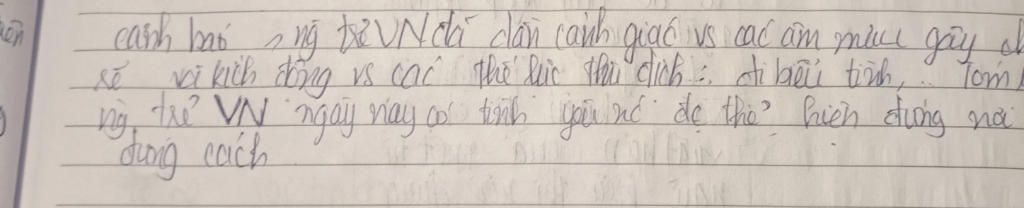 cảnh báo, ng trẻ VN đã dần cảnh giác vs các âm mưu gây
vs các thế lực thù địch: đi biểu tình,... Tóm
ng trẻ VN ngày nay có tình yêu nc thể hiện đúng nơi
đúng cách